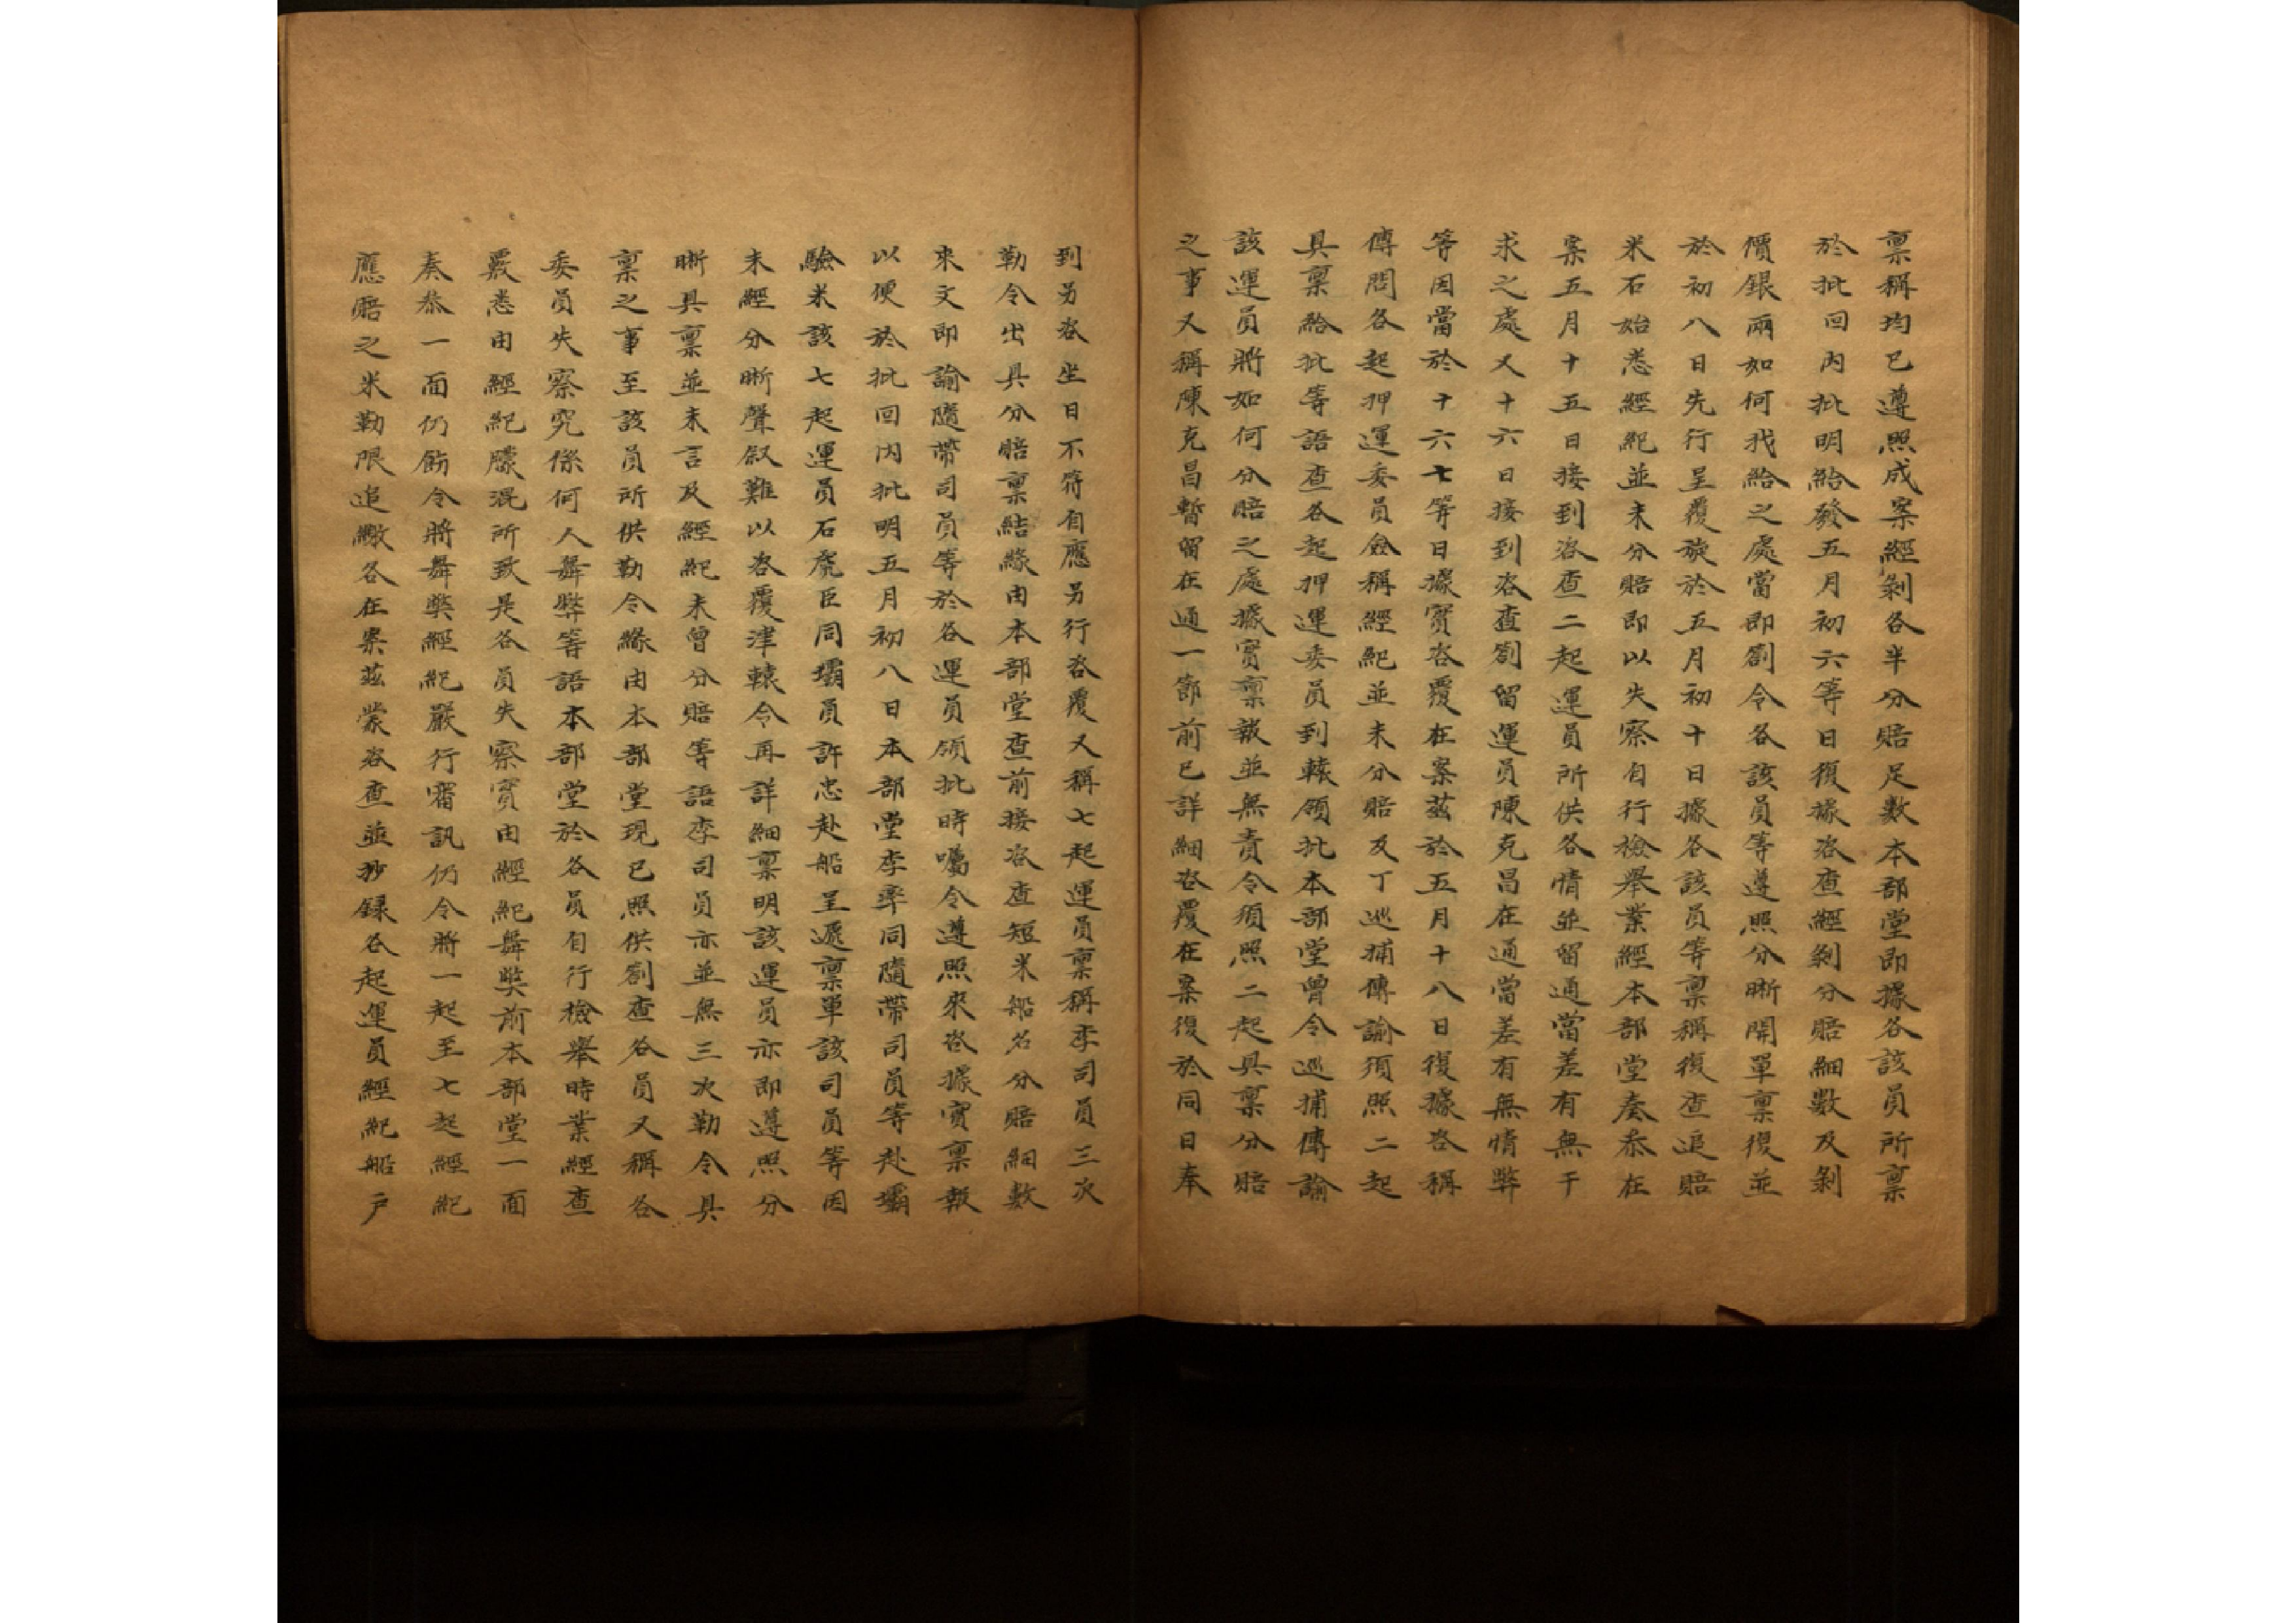 稟稱均已遵照成案經剝各半分賠足數本部堂即據各該員所稟
於批回內批明給發五月初六等日復據咨查經剝分賠細數及剝
價銀兩如何找給之處當即劄令各該員等遵照分晰開單稟復並
於初八日先行呈覆旋於五月初十日據各該員等稟稱復查追賠
米石始悉經紀並未分賠即以失察自行檢舉業經本部堂奏叅在
案五月十五日接到咨查二起運員所供各情並留通當差有無干
求之處又十六日接到咨查劄留運員陳克昌在通當差有無情弊
等因當於十六七等日據實咨覆在案茲於五月十八日復據咨稱
傳問各起押運委員僉稱經紀並未分賠及丁巡捕傳諭須照二起
具稟給批等語查各起押運委員到轅領批本部堂曾令巡捕傳諭
該運員將如何分賠之處據實稟報並無責令須照二起具稟分賠
之事又稱陳克昌暫留在通一節前已詳細咨覆在案復於同日奉
到另咨坐日不符自應另行咨覆又稱七起運員稟稱李司員三次
勒令出具分賠稟結緣由本部堂查前接咨查短米船名分賠細數
來文即諭隨帶司員等於各運員領批時囑令遵照來咨據實稟報
以便於批回內批明五月初八日本部堂李率同隨帶司員等赴壩
驗米該七起運員石虎臣同壩員許忠赴船呈遞稟單該司員等因
未經分晰聲敘難以咨覆津轅令再詳細稟明該運員亦即遵照分
晰具稟並未言及經紀未曾分賠等語李司員亦並無三次勒令具
稟之事至該員所供勒令緣由本部堂現已照供劄查各員又稱各
委員失察究係何人舞弊等語本部堂於各員自行檢舉時業經查
覈悉由經紀朦混所致是各員失察實由經紀舞獘前本部堂一面
奏叅一面仍飭令將舞獘經紀嚴行審訊仍令將一起至七起經紀
應賠之米勒限追繳各在案茲蒙咨查並抄錄各起運員經紀船戶